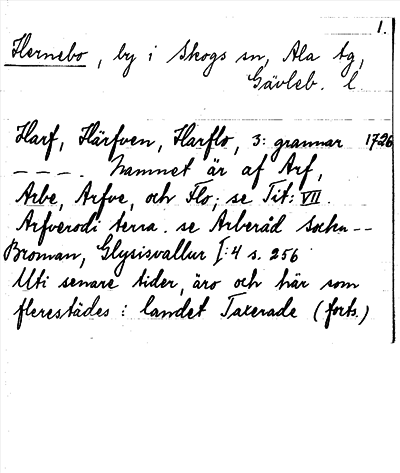 1.
Hernebo, by i Skogs sn, Ala tg,
Gävleb. l
Harf, Härfven, Harflo, 3: grannar 1726
– – – –. Namnet är af Arf,
Arbe, Arfve, och Flo; se Tit: VII.
Arfverodi terra. se Arberåd sockn – –
Broman, Glysisvallur I:4 s. 256
Uti senare tider, äro och här som
flerestädes i landet Taxerade (forts.)